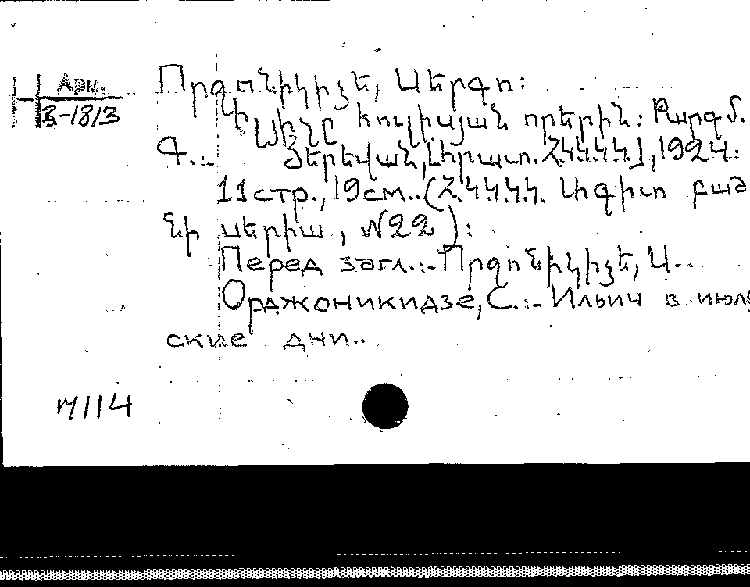 Арм.
3-1813
Որջոնիկիձե, Սերգո:
Իլյիչը հուլիսյան որերին: Թարգմ.
Գ.:_ Յերեվան, Հրատ. Հ.Կ.Կ.Կ.], 1924:
11 стр., 19 см.. (Հ.Կ.Կ.Կ. Ագիտ բաժ
նի սերիա, №22):
Перед загл.:- Որջոնիկիձե, Ս..
Орджоникидзе, С.:- Ильич в июль
ские дни..
М114